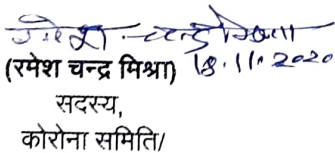 रमेश चन्द्र मिश्रा
18.11.2020
(रमेश चन्द्र मिश्रा)
सदस्य,
कोरोना समिति/